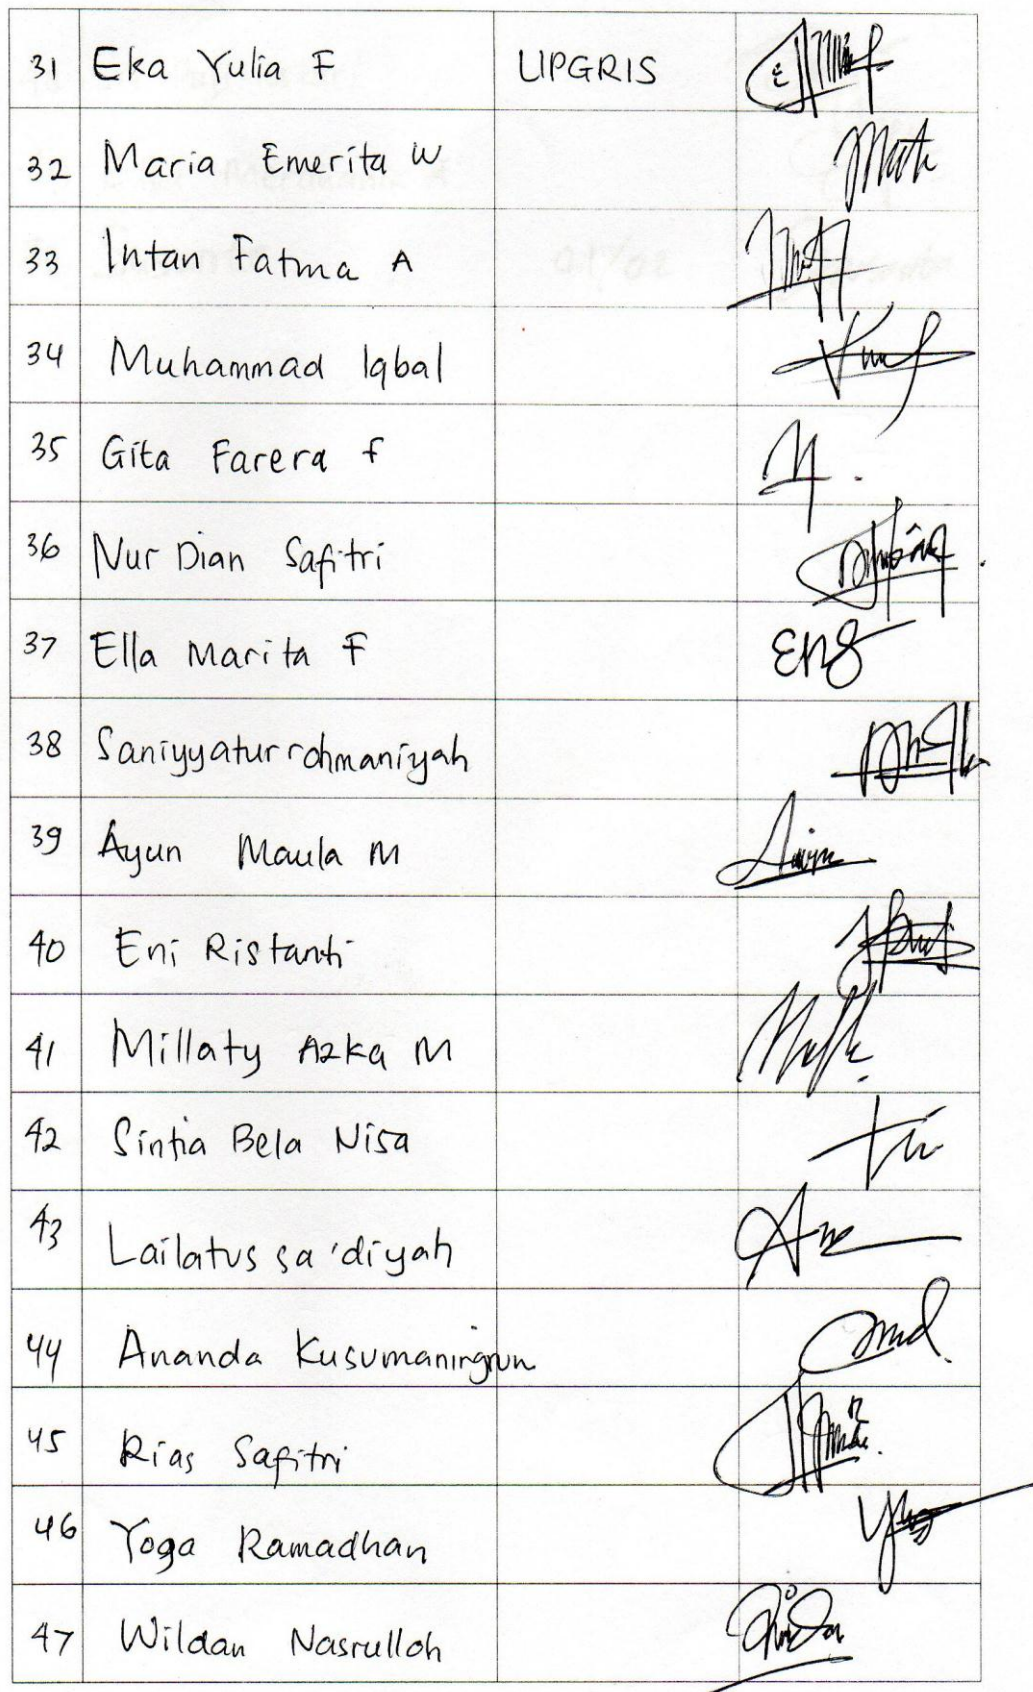 31 Eka Yulia F UPGRIS
32 Maria Emerita W
33 Intan Fatma A
34 Muhammad Iqbal
35 Gita Farera f
36 Nur Dian Safitri
37 Ella Marita F
38 Saniyyaturrohmaniyah
39 Ayun Maula M
40 Eni Ristanti
41 Millaty Azka M
42 Sintia Bela Nisa
43 Lailatus sa'diyah
44 Ananda Kusumaningrun
45 Rias Safitri
46 Yoga Ramadhan
47 Wildan Nasrulloh